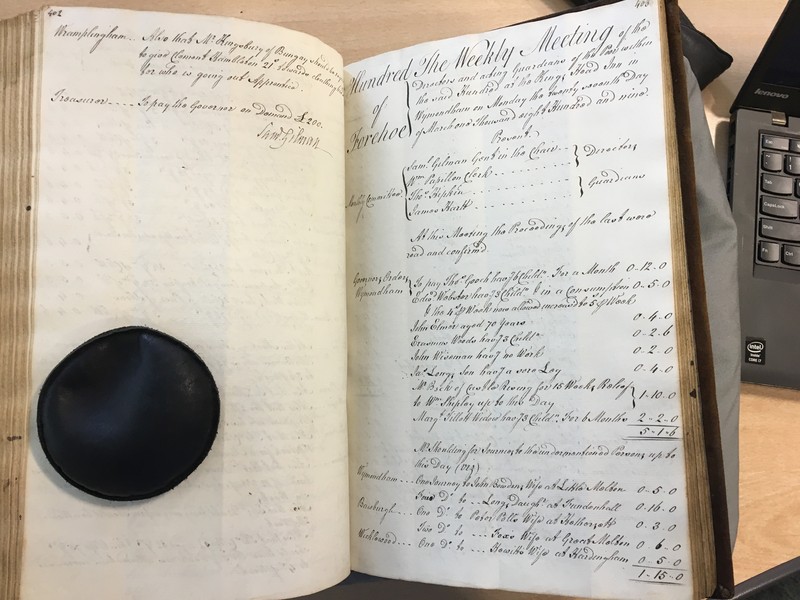 402
Wramplingham... Also that Mr Kingsbury of Bungay
to
for who is going out Apprentice
Treasurer.... To pay the Governor on Demand £200.
Saml Gilman
403
Hundred of Forehoe
The Weekly Meeting of the
Directors and acting Guardians of the Poor within
the said Hundred at the Kings Head Inn in
Wymondham on Monday the twenty seventh Day
of March one Thousand eight Hundred and nine.
Present
Saml Gilman Gent in the Chair
Wm Papillon Clerk
Directors
Weekly Committee
Thos Hipkin
James Hartt
Guardians
At this Meeting the Proceedings of the last were
read and confirmed
Governors Orders
Wymondham
To pay Thos Gooch hav7 6 Childn For a Month 0-12-0
Edwd Webster hav7 5 Childn & in a Consumption 0-5-0
& the 4s/ Week now allowed increased to 5s/ Week
John Elmer aged 70 Years 0-4-0
Erasmus Woods hav7 5 Childn 0-2-6
John Wiseman hav7 no Work 0-2-0
Jas Longs Son hav7 a sore Leg 0-4-0
Mr Beck of Castle Rising for 15 Weeks Relief
to Wm Shipley up to this Day 1-10-0
Margt Tillett Widow hav7 3 Childn For 6 Months 2-2-0
5-1-6
Mr for Journeys to the undermentioned Persons up to
this Day (viz)
Wymondham... One Journey to John Bowden's Wife at Little Melton 0-5-0
Four Do to ... Longs Daughr at Fundenhall 0-16-0
One Do to Peter Wife at 0-3-0
Two Do to ... Wife at Great Melton 0-6-0
Wicklewood... One Do to ... Wife at Hardingham 0-5-0
1-15-0
lenovo
Esc
Tab
CapsLock
Shift
Fn
Ctrl
intel
inside
CORE i7